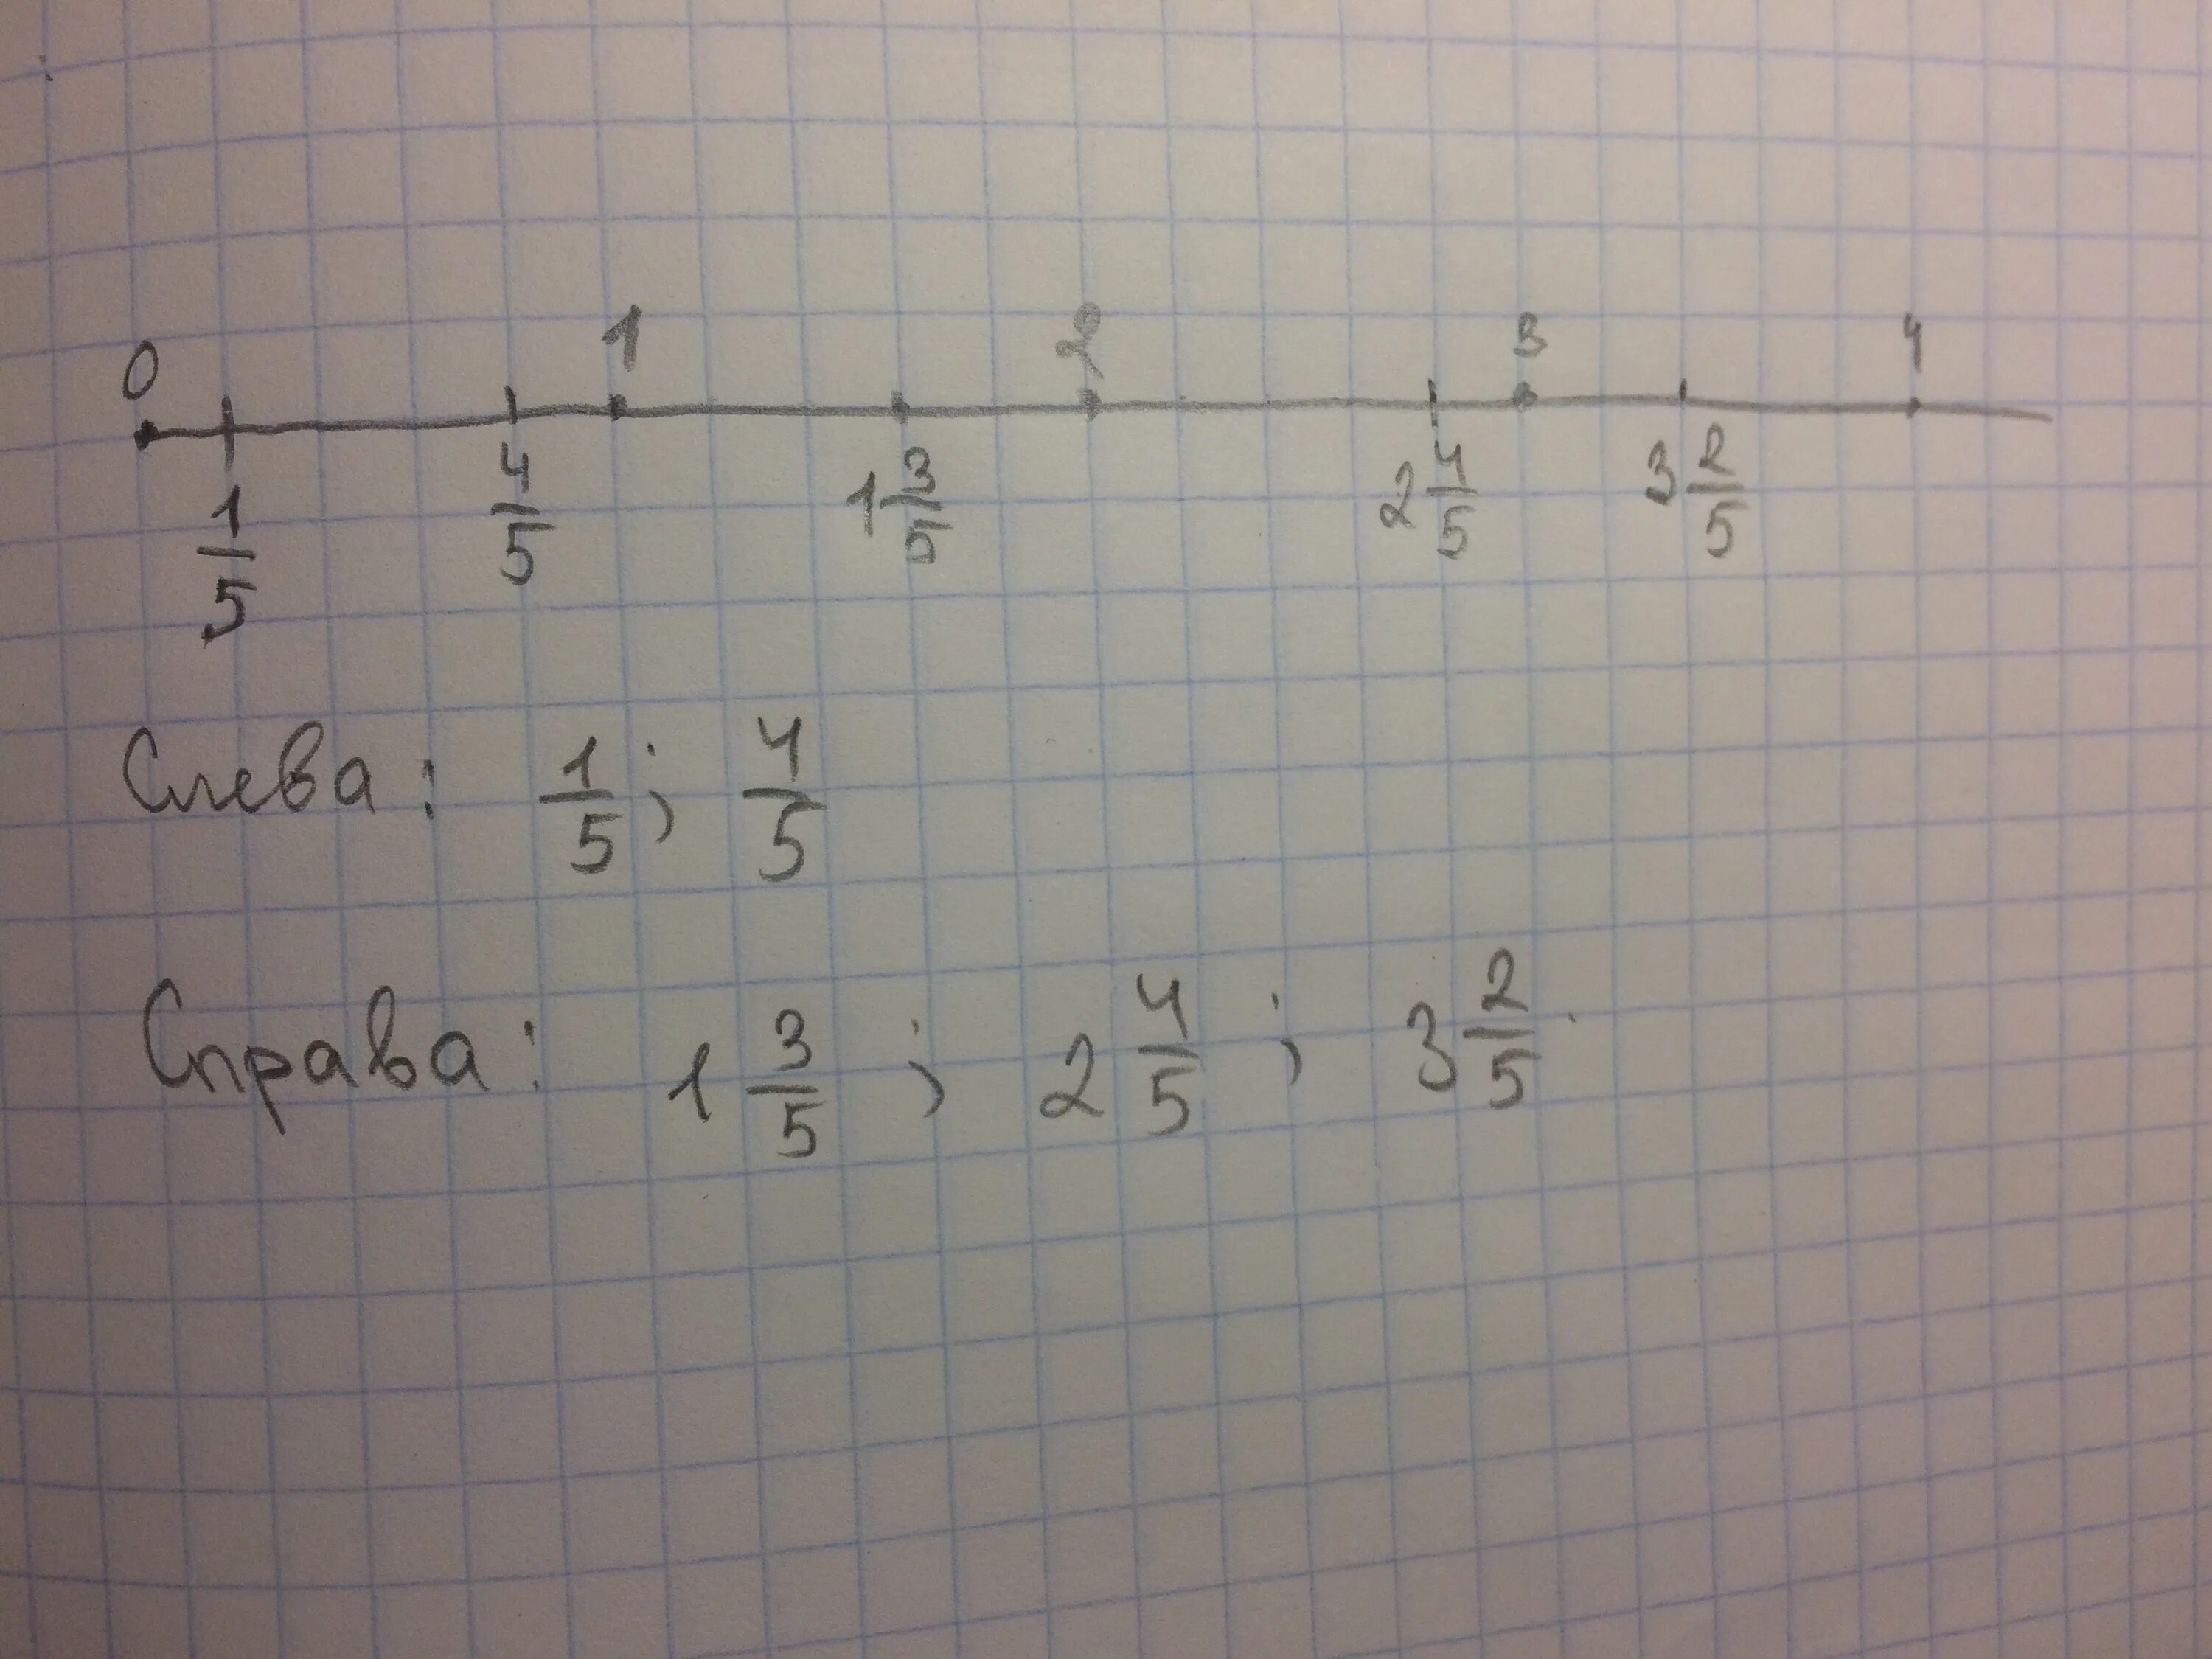 0 1 2 3 4
1/5 4/5 1 3/5 2 4/5 3 2/5
Слева: 1/5; 4/5
Справа: 1 3/5; 2 4/5; 3 2/5